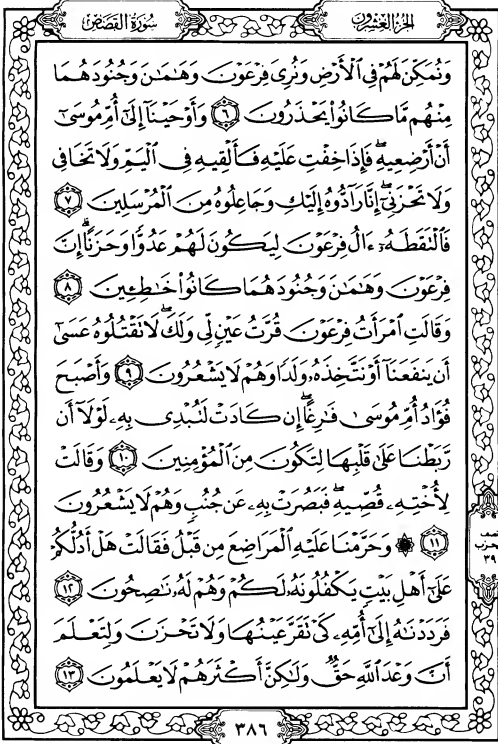 سُورَةُ القَصَصِ
الجُزءُ العِشْرُونَ
وَنُمَكِّنَ لَهُمْ فِي ٱلْأَرْضِ وَنُرِيَ فِرْعَوْنَ وَهَٰمَٰنَ وَجُنُودَهُمَا
مِنْهُم مَّا كَانُوا۟ يَحْذَرُونَ ٦ وَأَوْحَيْنَآ إِلَىٰٓ أُمِّ مُوسَىٰٓ
أَنْ أَرْضِعِيهِ ۖ فَإِذَا خِفْتِ عَلَيْهِ فَأَلْقِيهِ فِي ٱلْيَمِّ وَلَا تَخَافِي
وَلَا تَحْزَنِيٓ ۖ إِنَّا رَآدُّوهُ إِلَيْكِ وَجَاعِلُوهُ مِنَ ٱلْمُرْسَلِينَ ٧
فَٱلْتَقَطَهُۥٓ ءَالُ فِرْعَوْنَ لِيَكُونَ لَهُمْ عَدُوًّا وَحَزَنًا ۗ إِنَّ
فِرْعَوْنَ وَهَٰمَٰنَ وَجُنُودَهُمَا كَانُوا۟ خَٰطِـِٔينَ ٨
وَقَالَتِ ٱمْرَأَتُ فِرْعَوْنَ قُرَّتُ عَيْنٍ لِّي وَلَكَ ۖ لَا تَقْتُلُوهُ عَسَىٰٓ
أَن يَنفَعَنَآ أَوْ نَتَّخِذَهُۥ وَلَدًا وَهُمْ لَا يَشْعُرُونَ ٩ وَأَصْبَحَ
فُؤَادُ أُمِّ مُوسَىٰ فَٰرِغًا ۖ إِن كَادَتْ لَتُبْدِي بِهِۦ لَوْلَآ أَن
رَّبَطْنَا عَلَىٰ قَلْبِهَا لِتَكُونَ مِنَ ٱلْمُؤْمِنِينَ ١٠ وَقَالَتْ
لِأُخْتِهِۦ قُصِّيهِ ۖ فَبَصُرَتْ بِهِۦ عَن جُنُبٍ وَهُمْ لَا يَشْعُرُونَ
١١ ۞ وَحَرَّمْنَا عَلَيْهِ ٱلْمَرَاضِعَ مِن قَبْلُ فَقَالَتْ هَلْ أَدُلُّكُمْ
عَلَىٰٓ أَهْلِ بَيْتٍ يَكْفُلُونَهُۥ لَكُمْ وَهُمْ لَهُۥ نَٰصِحُونَ ١٢
فَرَدَدْنَٰهُ إِلَىٰٓ أُمِّهِۦ كَيْ تَقَرَّ عَيْنُهَا وَلَا تَحْزَنَ وَلِتَعْلَمَ
أَنَّ وَعْدَ ٱللَّهِ حَقٌّ وَلَٰكِنَّ أَكْثَرَهُمْ لَا يَعْلَمُونَ ١٣
نصف
الحزب
٣٩
٣٨٦